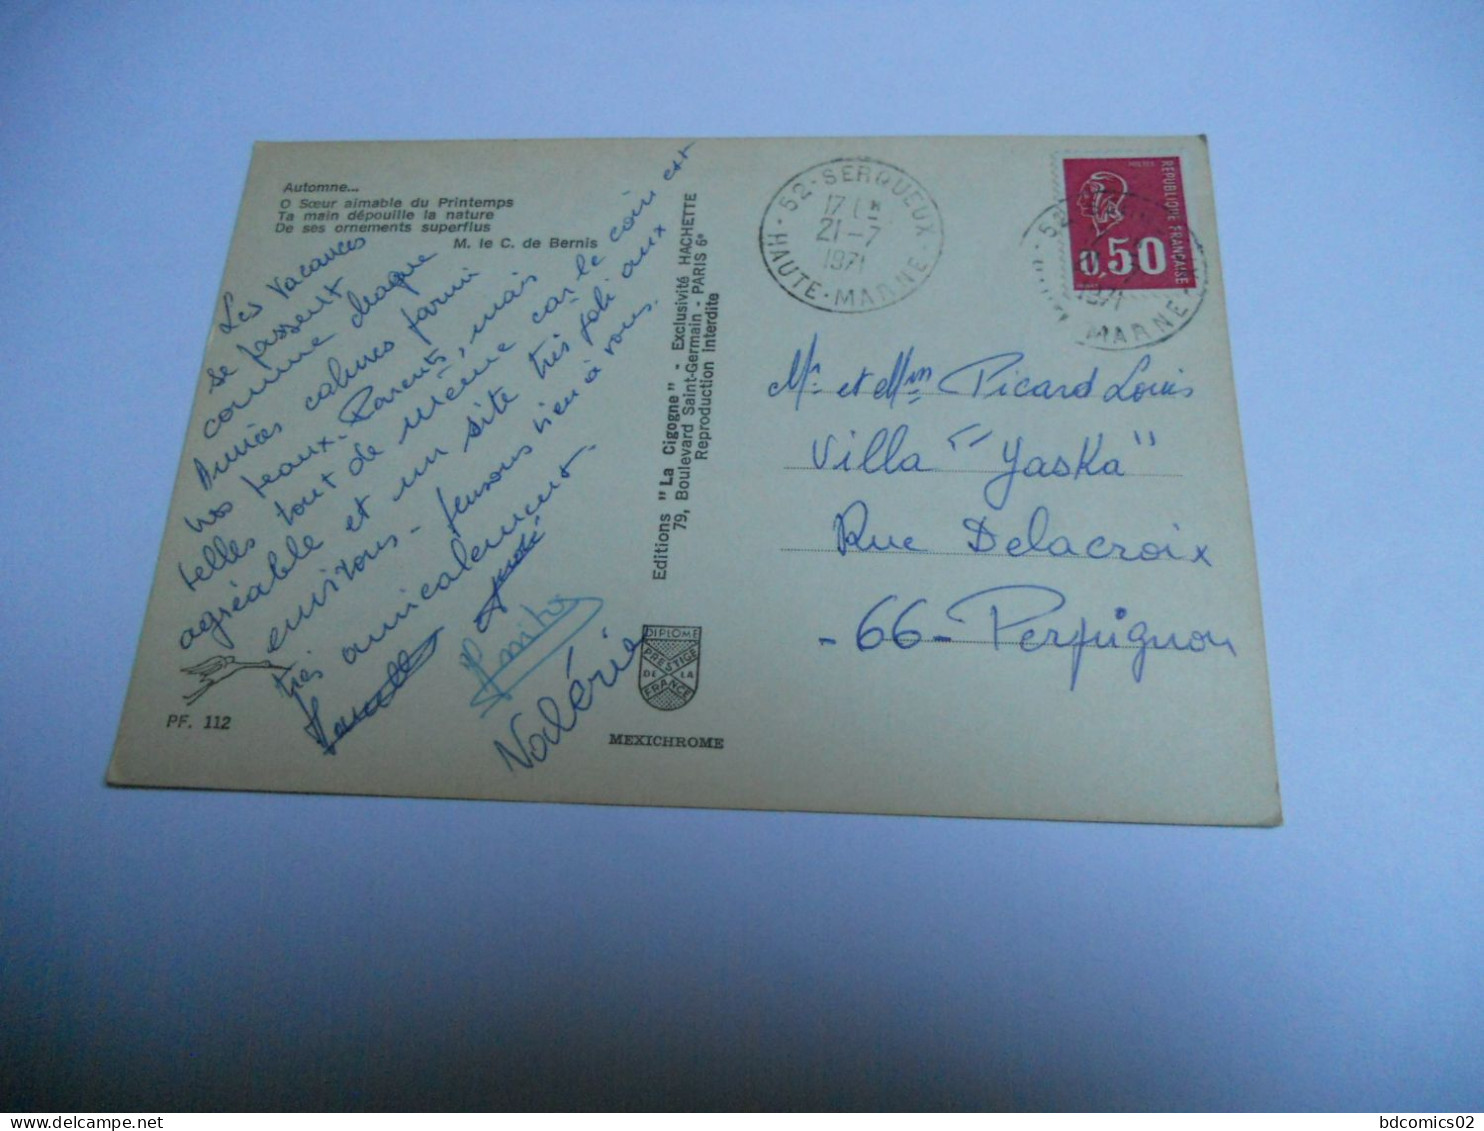 Automne...
O Sœur aimable du Printemps
Ta main dépouille la nature
De ses ornements superflus
M. le C. de Bernis
Les Vacances
se passent
comme chaque
Années calmes parmi
nos beaux-Parents, mais
telles tout de même car le coin est
agréable et un site très joli aux
environs - pensons bien à vous.
très amicalement.
André
Valérie
PF. 112
Editions "La Cigogne" - Exclusivité HACHETTE
79, Boulevard Saint-Germain - PARIS 6e
Reproduction interdite
DIPLOME
PRESTIGE
DE LA
FRANCE
MEXICHROME
52-SERQUEUX
17 H
21-7
1971
HAUTE-MARNE
POSTES
REPUBLIQUE FRANÇAISE
0,50
1971
MARNE
Mr et Mm Picard Louis
Villa "Yaska"
Rue Delacroix
-66- Perpignon
bdcomics02